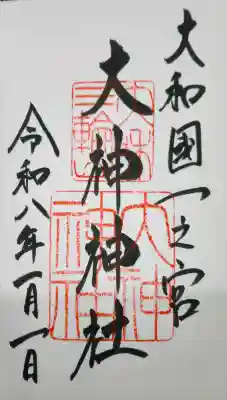 大和國一之宮
三輪明神
大神神社
大神神社
令和八年一月一日